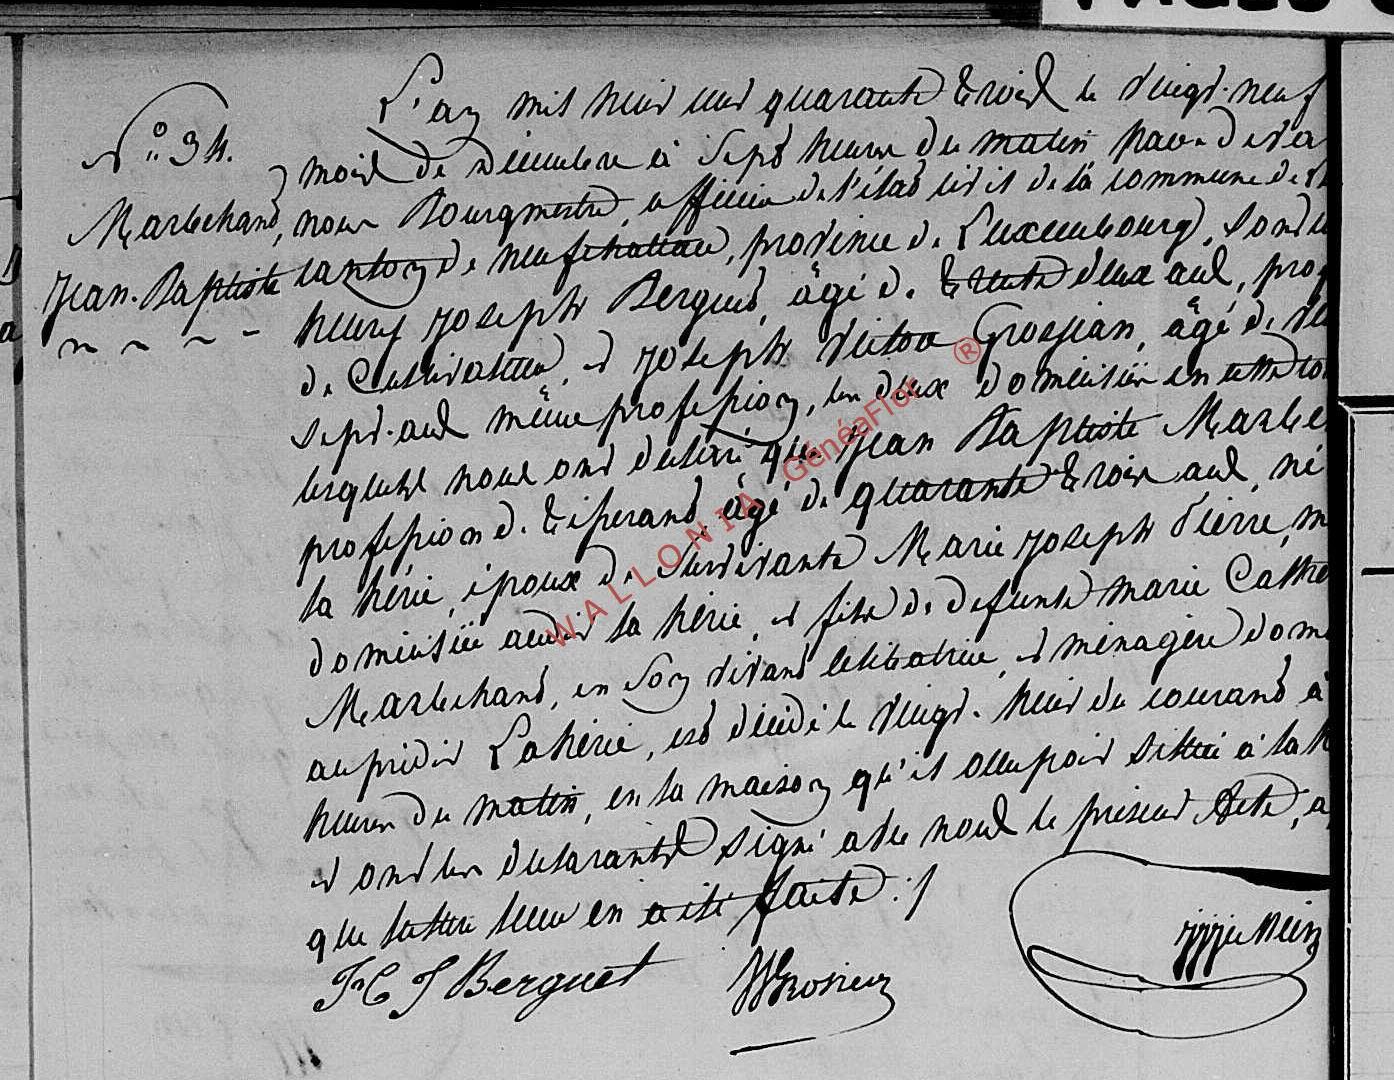 L'an mil huit cent quarante trois le vingt-neuf
N° 34.
mois de décembre à sept heures du matin par-deva
Marlechand, nous Bourgmestre, officier de l'état civil de la commune de
Jean-Baptiste canton de neufchateau, province de Luxembourg, sont
henry joseph Berguet, âgé de trente deux ans, prof
de Cultivateur, et joseph victor Grosjean, âgé de
sept ans même profession, les deux domiciliés en cette
lesquels nous ont déclaré que Jean Baptiste Marle
profession de tisserand, âgé de quarante trois ans, né
la hérie, époux de survivante Marie joseph Pierre, m
domiciliée audit la hérie, et fils de défunte marie Cathe
Marlechand, en son vivant célibatrice, et ménagère dom
au prédit Lahérie, est décédé le vingt-huit du courant à
heures du matin, en la maison qu'il occupoit située à la h
et ont les déclarants signé avec nous le présent Acte, a
que lecture leur en a été faite :/
H J Berguet
VGrosjean
WALLONIA GénéaFlor ®